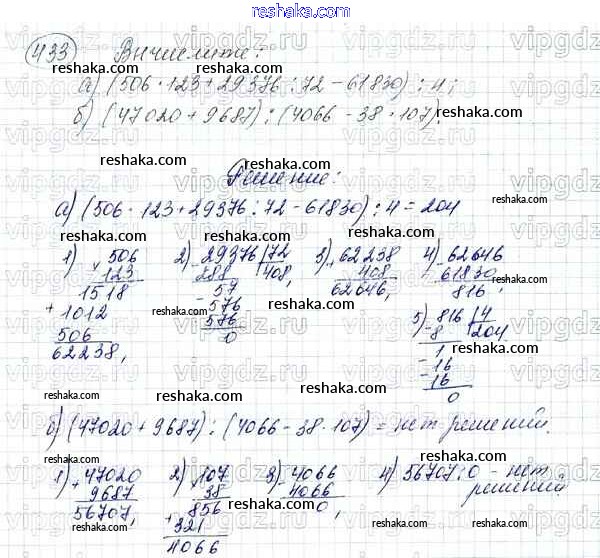 reshaka.com
433 Вычислите:
а) (506 · 123 + 29376 : 72 - 61830) : 4;
б) (47020 + 9687) : (4066 - 38 · 107).
Решение:
а) (506 · 123 + 29376 : 72 - 61830) : 4 = 204
1) × 506
123
1518
+ 1012
506
62238,
2) - 29376 | 72
288 | 408,
57
- 576
576
0
3) + 62238
408
62646,
4) - 62646
61830
816,
5) - 816 | 4
8 | 204
1
- 16
- 16
0
б) (47020 + 9687) : (4066 - 38 · 107) = нет решений.
1) + 47020
9687
56707,
2) × 107
38
856
+ 321
4066
3) - 4066
4066
0,
4) 56707 : 0 - нет
решений